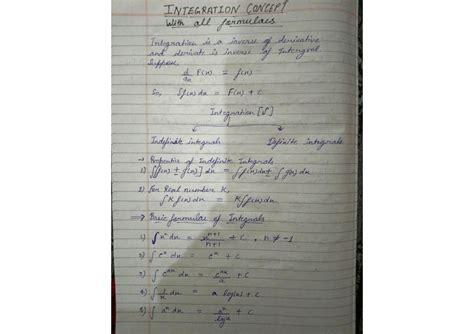 INTEGRATION CONCEPT
With all formulaes
Integration is a inverse of derivative
and derivate is inverse of Intergral
Suppose,
d/dx F(x) = f(x)
So, ∫f(x)dx = F(x) + C
Integration [∫]
Indefinite integrals Definite integrals
→ Properties of Indefinite Integrals
1) ∫[f(x) ± g(x)] dx = ∫f(x)dx ± ∫g(x)dx
2) For Real number K,
∫K f(x) dx = K∫f(x)dx
⇒ Basic formulae of Integrals
1) ∫xⁿ dx = xⁿ⁺¹/n+1 + C , n ≠ -1
2) ∫eˣ dx = eˣ + C
3) ∫eᵃˣ dx = eᵃˣ/a + C
4) ∫ dx = a log(x) + C
5) ∫aˣ dx = aˣ/log a + C